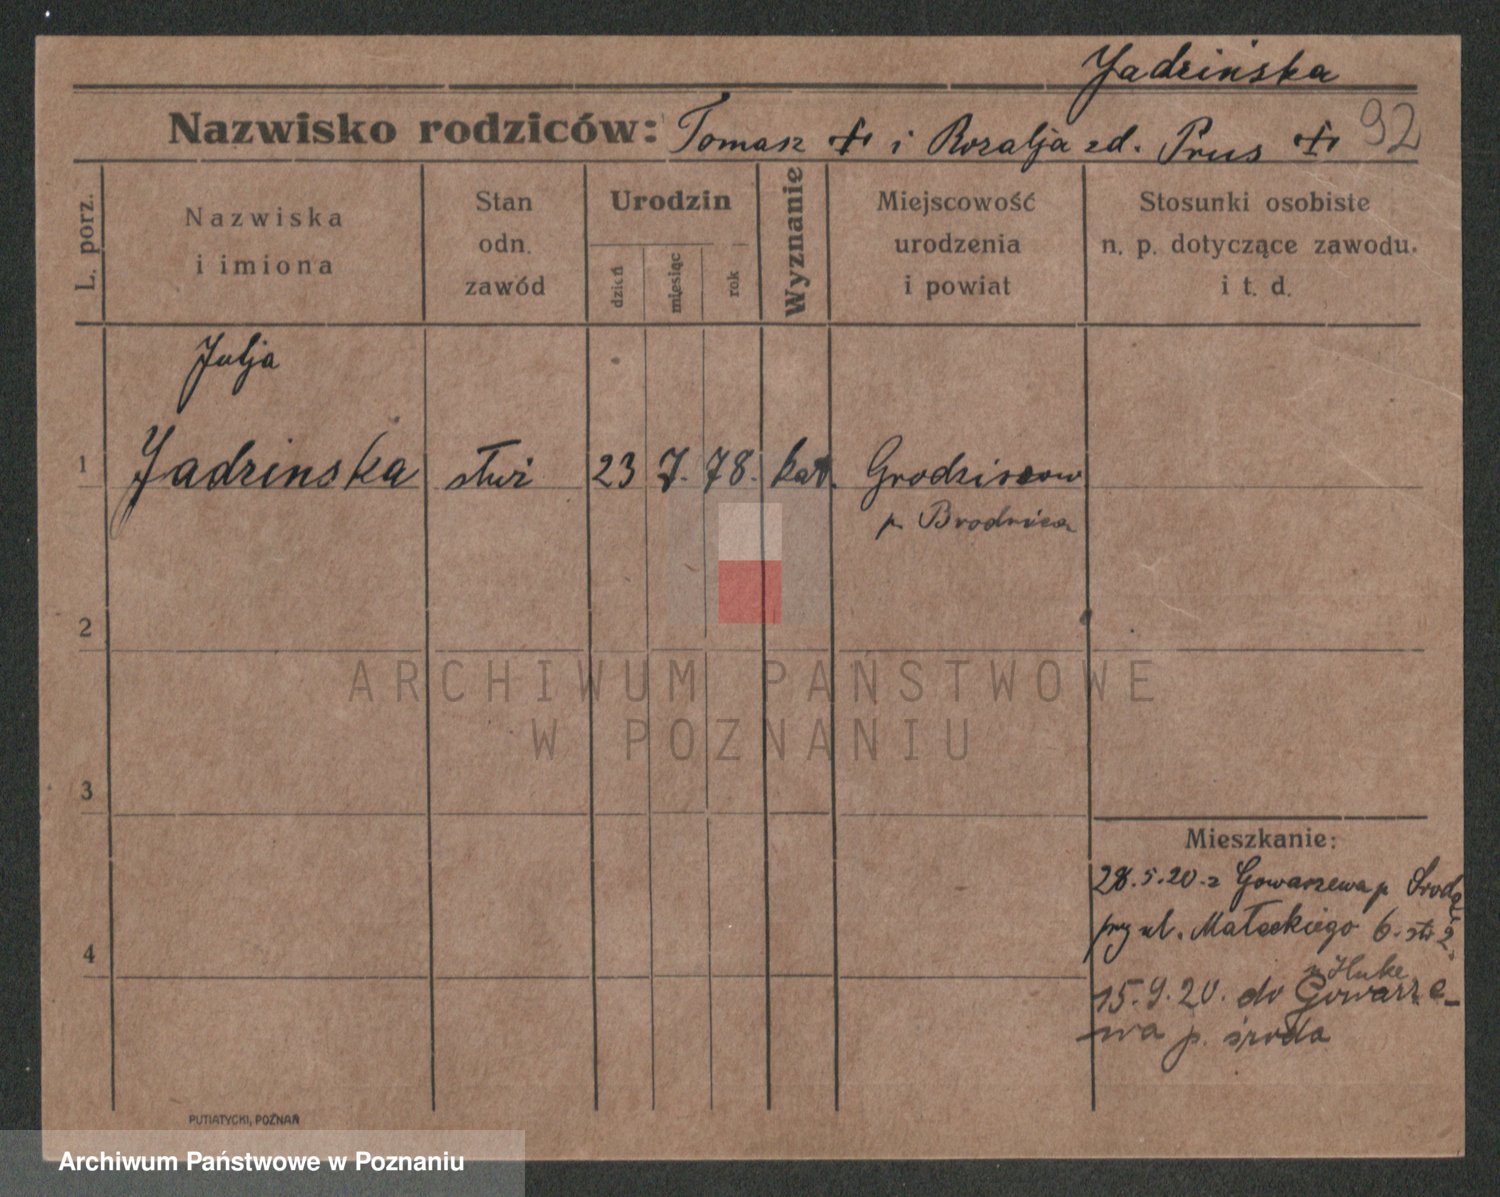 Jadzińska
92
Nazwisko rodziców: Tomasz + i Rozalja zd. Prus +
L. porz.
Nazwiska
i imiona
Stan
odn.
zawód
Urodzin
dzień
miesiąc
rok
Wyznanie
Miejscowość
urodzenia
i powiat
Stosunki osobiste
n. p. dotyczące zawodu.
i t. d.
Julja
1 Jadzinska służ 23 7. 78. kat.
p. Brodnica
2
ARCHIWUM PAŃSTWOWE
W POZNANIU
3
Mieszkanie:
28.5.20 z Gowarzewa p Środa
przy ul. Małeckiego 6.
4
15.9.20. do Gowarze-
wa p. środa
PUTIATYCKI, POZNAŃ
Archiwum Państwowe w Poznaniu